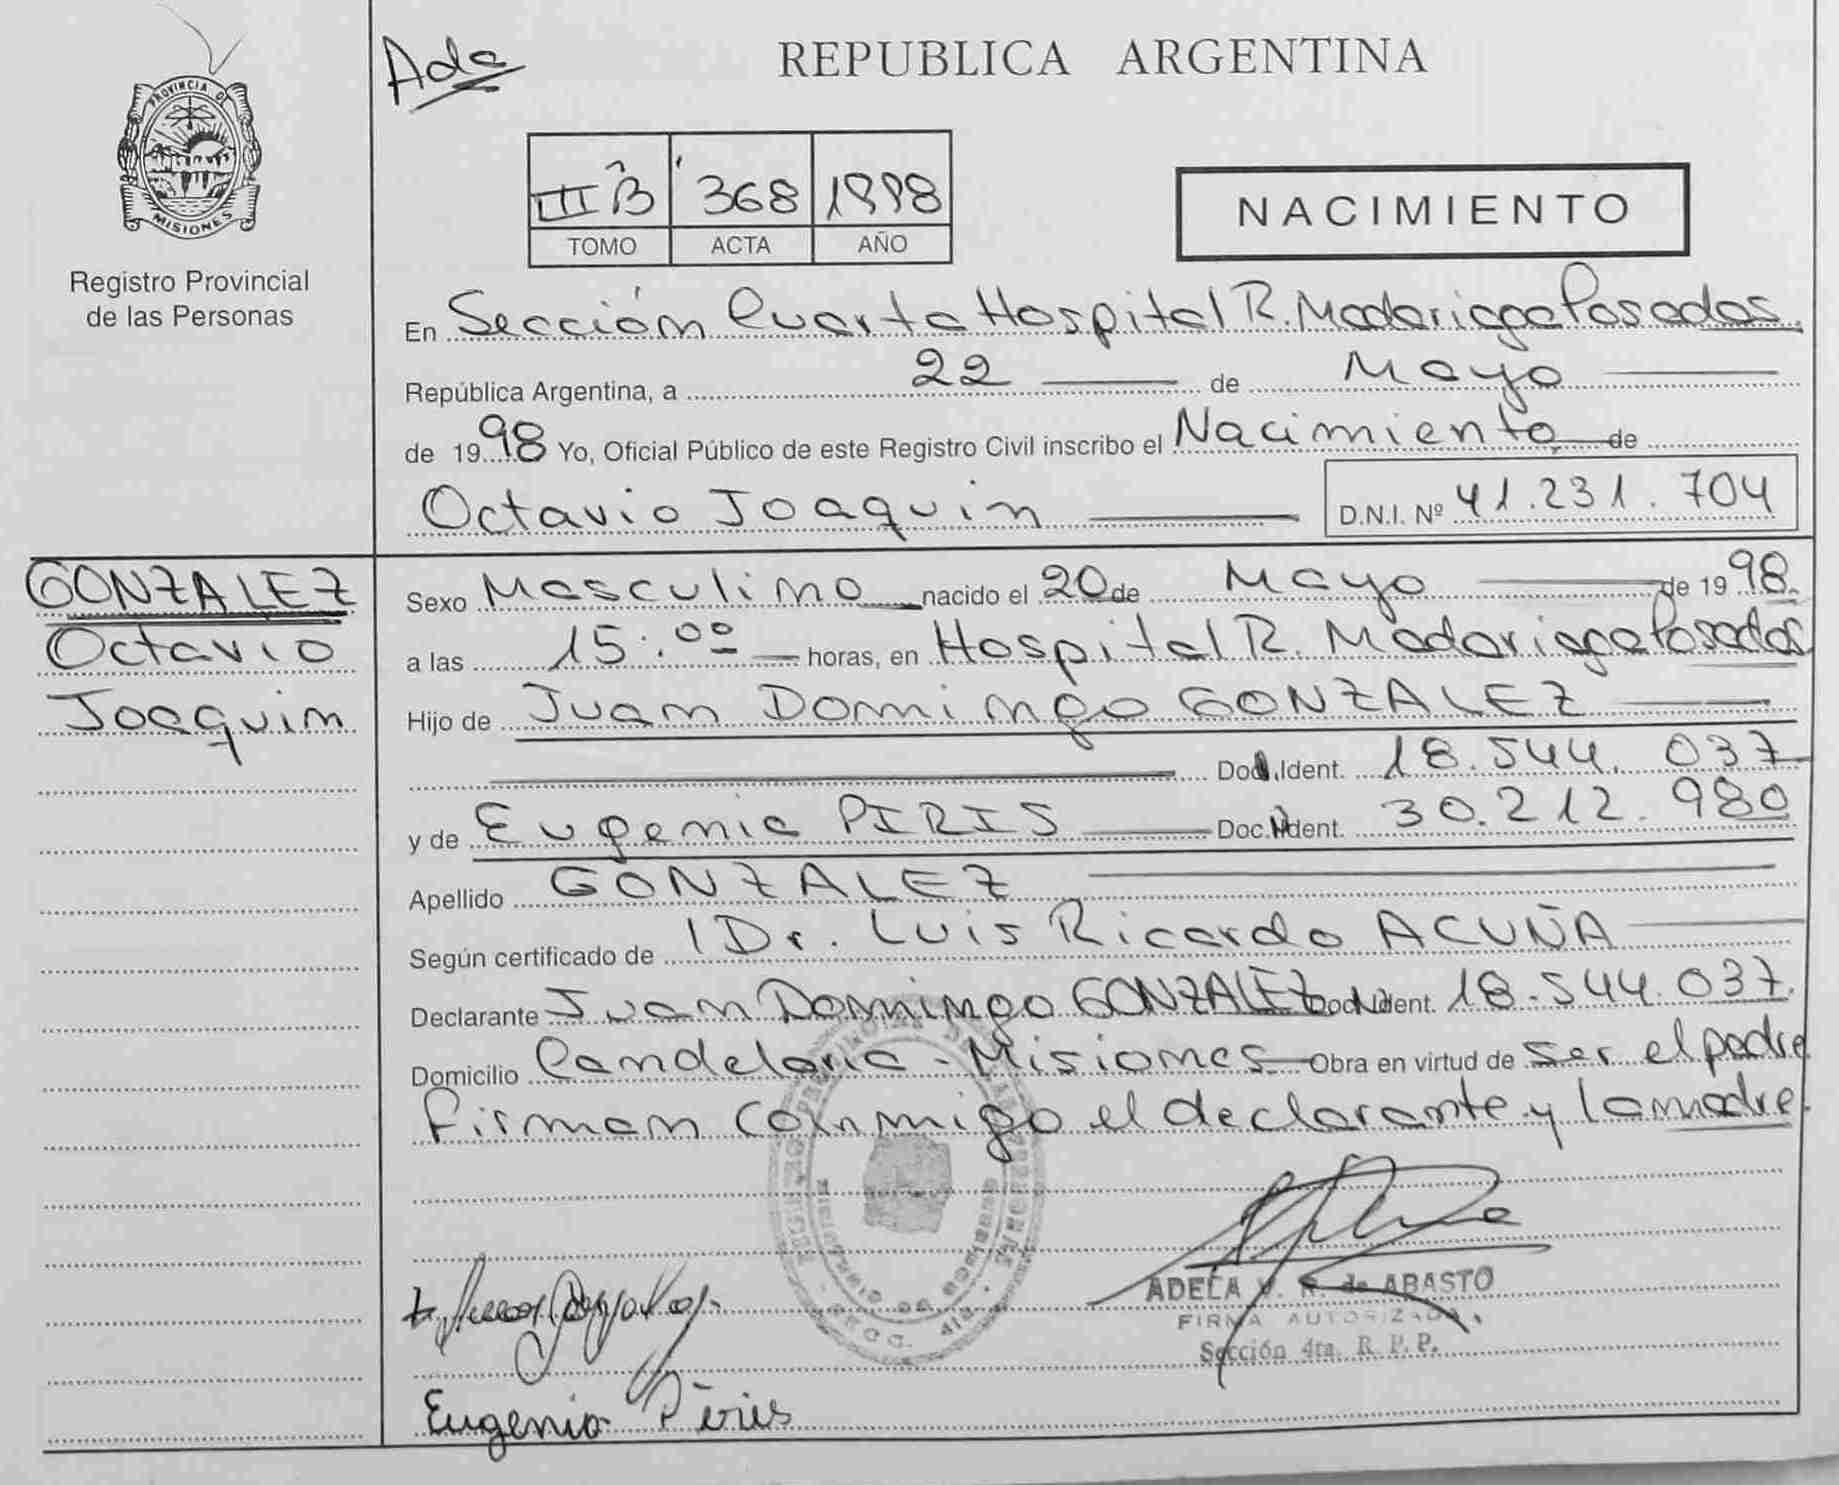 PROVINCIA D
MISIONES
Registro Provincial
de las Personas
Ada
REPUBLICA ARGENTINA
III B 368 1998
TOMO ACTA AÑO
NACIMIENTO
En Sección Cuarta Hospital R. Madariaga Posadas.
República Argentina, a 22 de Mayo
de 1998 Yo, Oficial Público de este Registro Civil inscribo el Nacimiento de
Octavio Joaquin D.N.I. Nº 41.231.704
GONZALEZ
Octavio
Joaquin
Sexo Masculino nacido el 20 de Mayo de 1998.
a las 15:00 horas, en Hospital R. Madariaga Posadas
Hijo de Juan Domingo GONZALEZ
Doc. Ident. 18.544.037
y de Eugenia PIRIS Doc. Ident. 30.212.980
Apellido GONZALEZ
Según certificado de Dr. Luis Ricardo ACUÑA
Declarante Juan Domingo GONZALEZ Doc. Ident. 18.544.037.
Domicilio Candelaria - Misiones Obra en virtud de ser el padre
firman conmigo el declarante y la madre.
ADELA V. R. de ABASTO
FIRMA AUTORIZADA
Sección 4ta. R. P. P.
Eugenia Piris